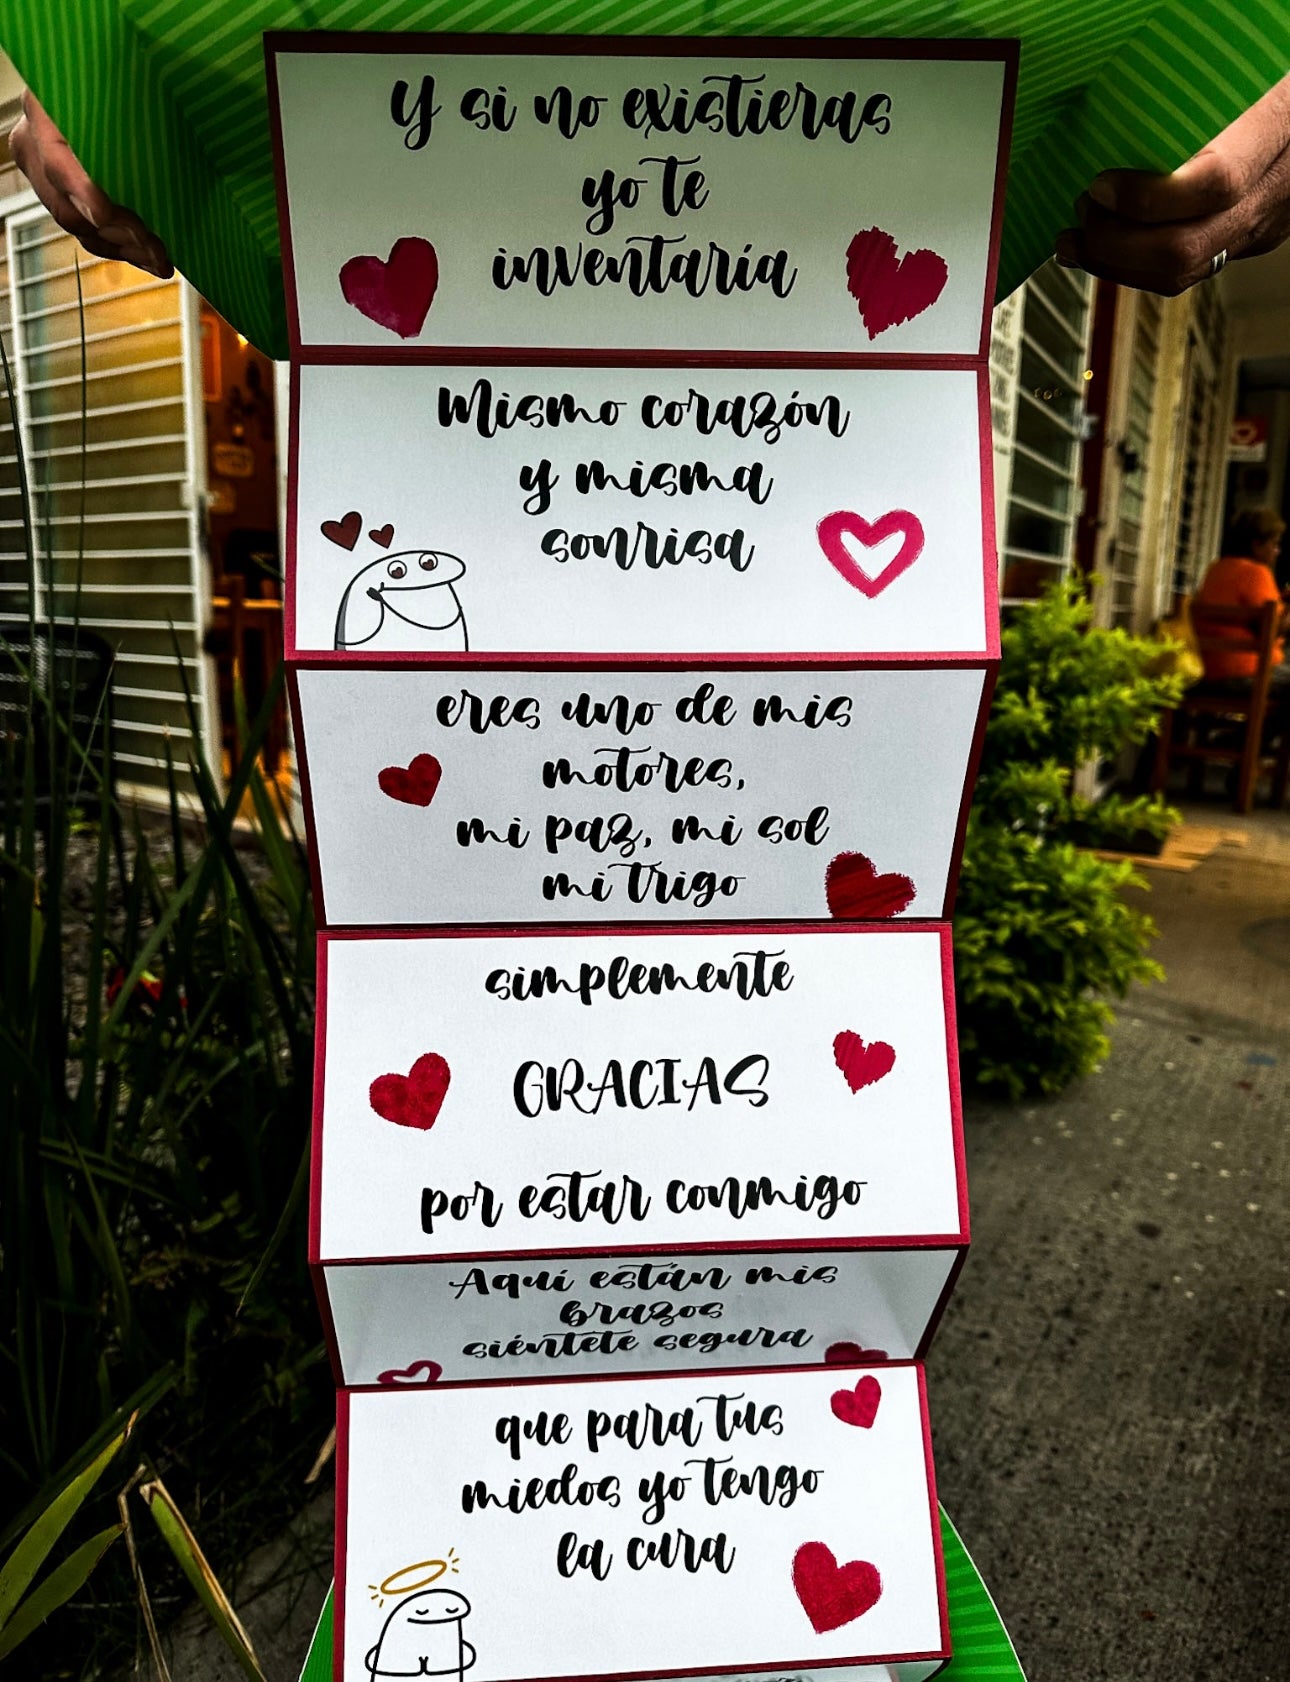 Y si no existieras
yo te
inventaría
Mismo corazón
y misma
sonrisa
eres uno de mis
motores,
mi paz, mi sol
mi trigo
simplemente
GRACIAS
por estar conmigo
Aquí están mis
brazos
siéntete segura
que para tus
miedos yo tengo
la cura